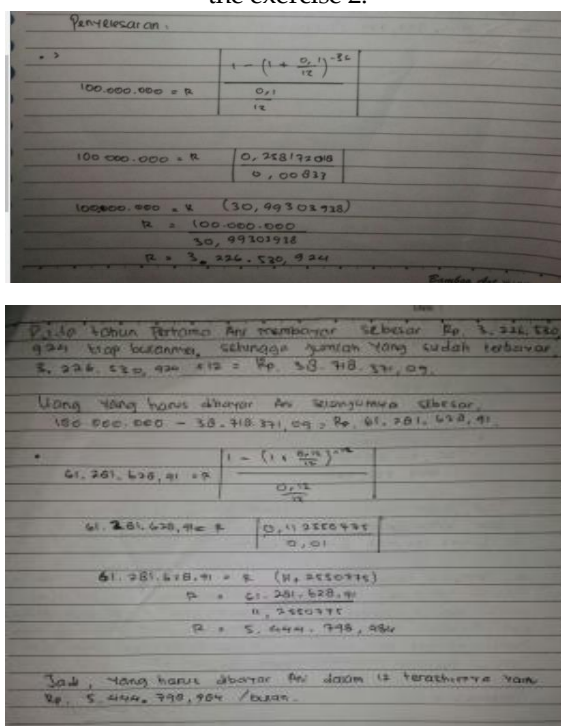 the exercise 2.
Penyelesaian :
1 - (1 + 0,1/12)^-36
100.000.000 = R
0,1
12
100 000.000 = R | 0,258172048 / 0,00833 |
100.000.000 = R (30,99303938)
R = 100.000.000
30,99303938
R = 3.226.530,924
Pada tahun Pertama Ani membayar sebesar Rp. 3.226.530,
924 tiap bulannya, sehingga jumlah yang sudah terbayar
3.226.530,924 × 12 = Rp. 38.718.371,09.
Uang yang harus dibayar Ani selanjutnya sebesar
100.000.000 - 38.718.371,09 = Rp. 61.281.628,91.
1 - (1 + 0,12/12)^-12
61.281.628,91 = R
0,12
12
61.281.628,91 = R | 0,112550775 / 0,01 |
61.281.628,91 = R (11,2550775)
R = 61.281.628,91
11,2550775
R = 5.444.798,984
Jadi, yang harus dibayar Ani dalam 12 terakhirnya
Rp. 5.444.798,984 /bulan.